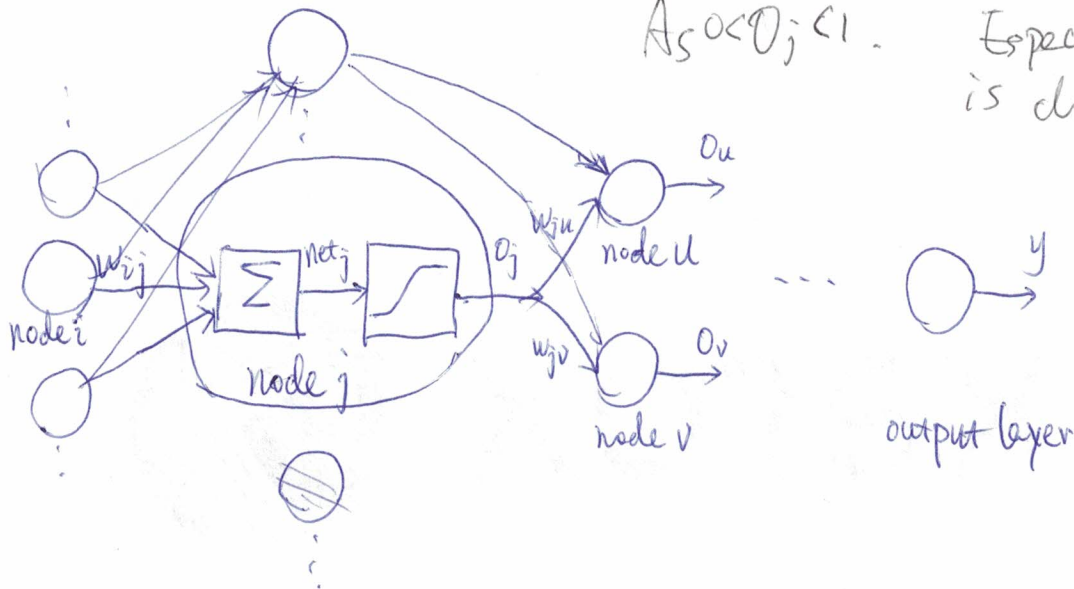 As 0<Oj<1. Espec
is d
Ou
wju
node u
wij
netj
Oj
Σ
...
y
node i
node j
wjv
Ov
node v
output layer